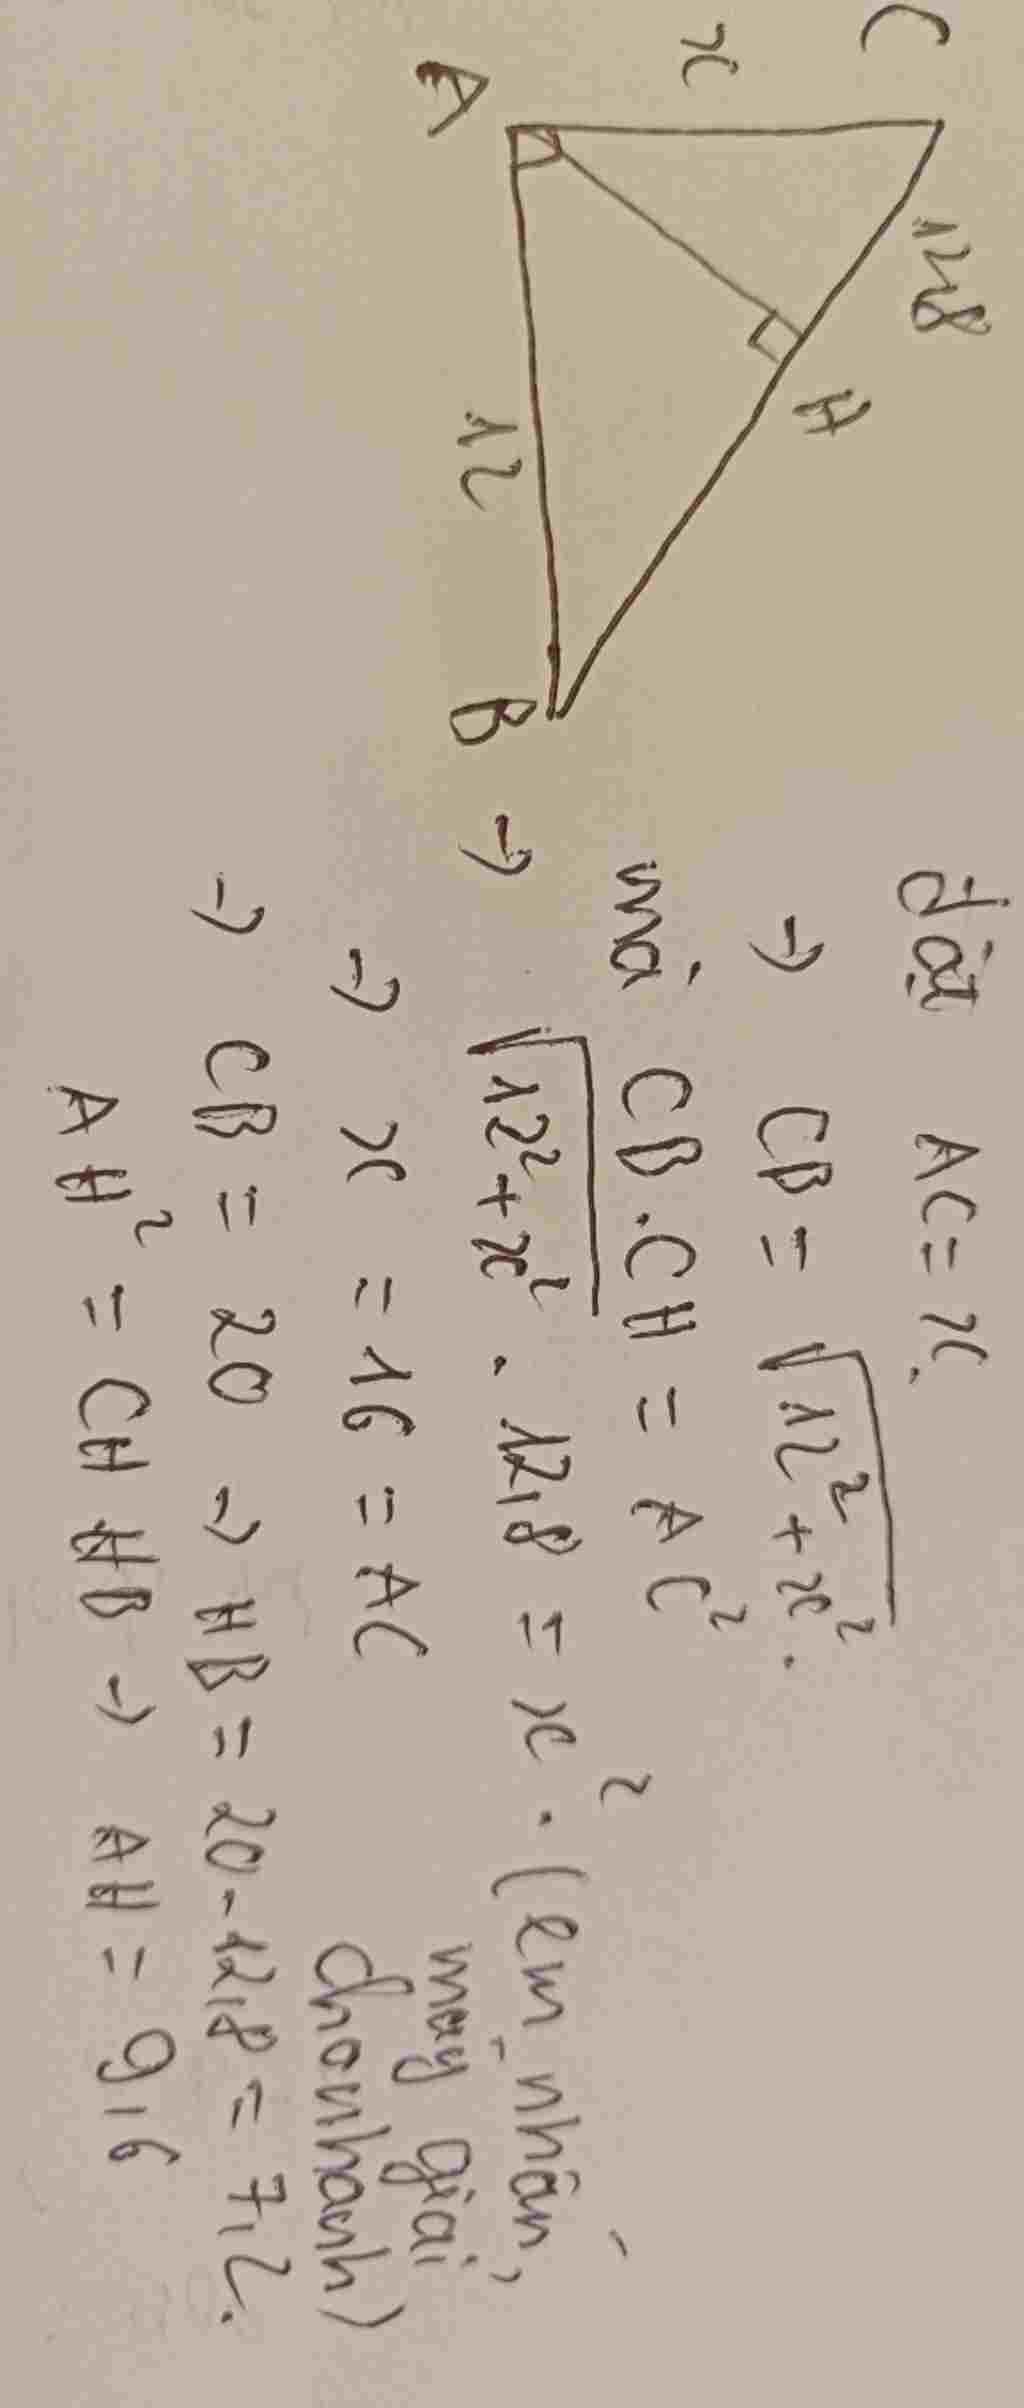 C
x
12,8
A
H
12
B
đặt AC = x.
→ CB = √12² + x².
mà CB.CH = AC²
→ √12² + x² . 12,8 = x². (em nhấn
máy giải
cho nhanh)
→ x = 16 = AC
→ CB = 20 → HB = 20 - 12,8 = 7,2.
AH² = CH HB → AH = 9,6